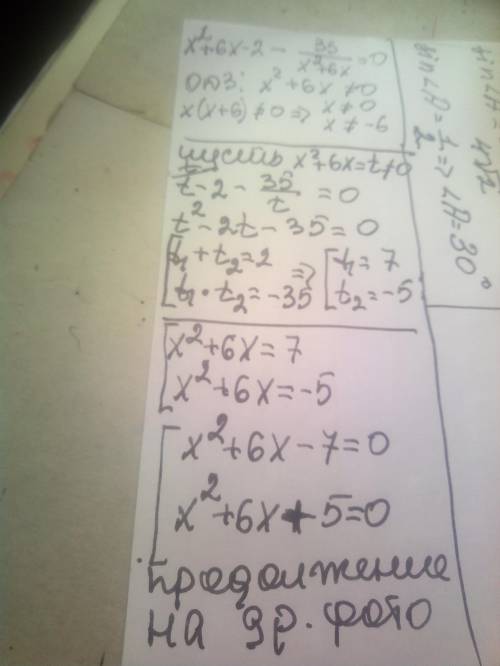 x²+6x-2 - 35/(x²+6x) = 0
ОДЗ: x²+6x≠0
x(x+6)≠0 => x≠0
x≠-6
пусть x²+6x=t≠0
t-2 - 35/t = 0
t²-2t-35=0
[t₁+t₂=2 => [t₁=7
[t₁·t₂=-35 [t₂=-5
[x²+6x=7
[x²+6x=-5
[x²+6x-7=0
[x²+6x+5=0
Продолжение
на др. фото
sin∠A=1/2 => ∠A=30°